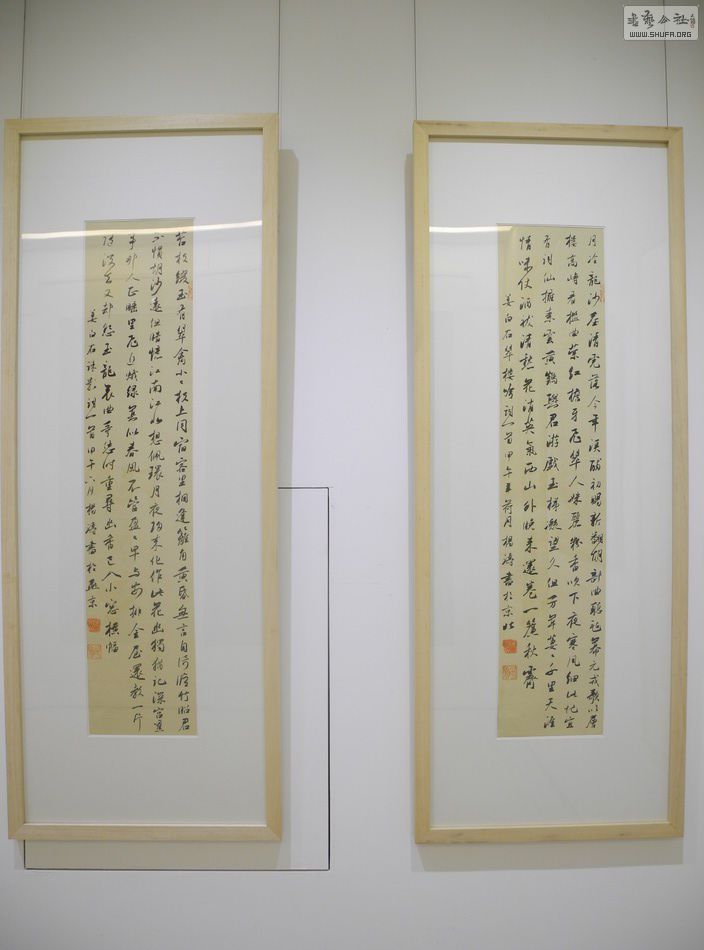 書藝公社
WWW.SHUFA.ORG
月冷龍沙塵清虎落今年漢酺初賜新翻胡部曲聽氈幕元戎歌吹層
樓高峙看檻曲縈紅檐牙飛翠人姝麗粉香吹下夜寒風細此地宜
有詞仙擁素雲黃鶴與君游戲玉梯凝望久但芳草萋々千里天涯
情味仗酒祓清愁花消英氣西山外晚來還卷一簾秋霽
姜白石翠樓吟詞一首甲午荷月楊濤書於京北
苔枝綴玉有翠禽小々枝上同宿客里相逢籬角黃昏無言自倚修竹昭君
不慣胡沙遠但暗憶江南江北想佩環月夜歸來化作此花幽獨猶記深宮舊
事那人正睡里飛近蛾綠莫似春風不管盈々早與安排金屋還教一片
隨波去又却怨玉龍哀曲等恁時重尋幽香已入小窗橫幅
姜白石疏影詞一首甲午六月楊濤書於燕京